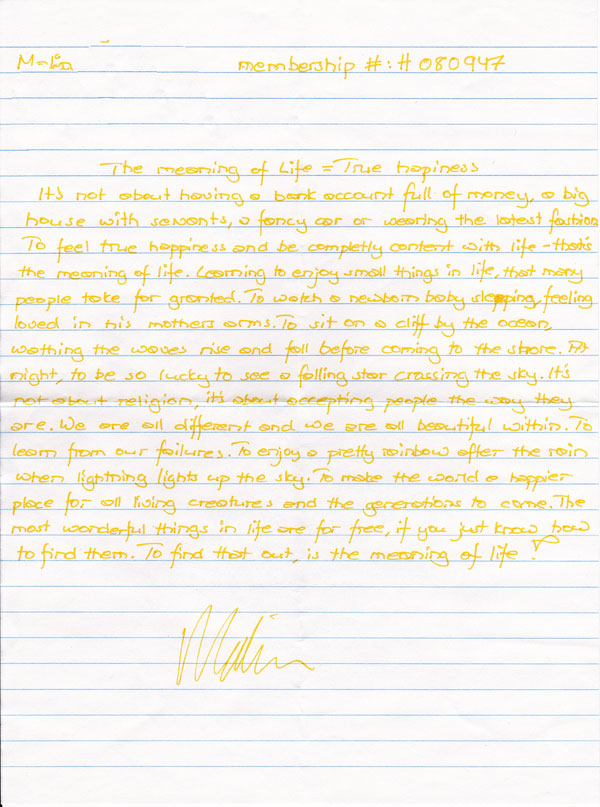 Malin
membership #: H 080947
The meaning of Life = True hapiness
It's not about having a bank account full of money, a big
house with servants, a fancy car or wearing the latest fashion
To feel true happiness and be completly content with life - that's
the meaning of life. Learning to enjoy small things in life, that many
people take for granted. To watch a newborn baby sleeping, feeling
loved in his mothers arms. To sit on a cliff by the ocean,
wathing the waves rise and fall before coming to the shore. At
night, to be so lucky to see a falling star crossing the sky. It's
not about religion, it's about accepting people the way they
are. We are all different and we are all beautiful within. To
learn from our failures. To enjoy a pretty rainbow after the rain
when lightning lights up the sky. To make the world a happier
place for all living creatures and the generations to come. The
most wonderful things in life are for free, if you just know how
to find them. To find that out, is the meaning of life!
Malin